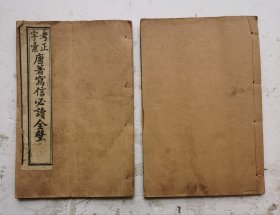 考正
字彙
唐著寫信必讀全璧